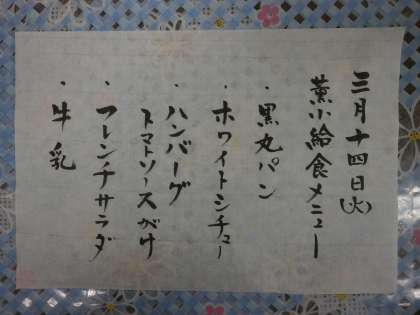 三月十四日(火)
薫小給食メニュー
・黒丸パン
・ホワイトシチュー
・ハンバーグ
トマトソースがけ
・フレンチサラダ
・牛乳